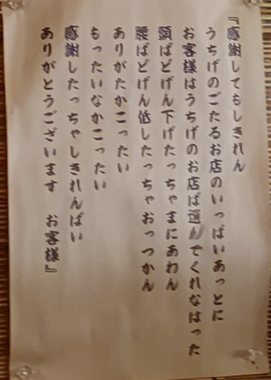 『感謝してもしきれん
うちげのごたるお店のいっぱいあっとに
お客様はうちげのお店ば選んでくれなはった
頭ばどげん下げたっちゃまにあわん
腰ばどげん低したっちゃおっつかん
ありがたかこったい
もったいなかこったい
感謝したっちゃしきれんばい
ありがとうございます　お客様』